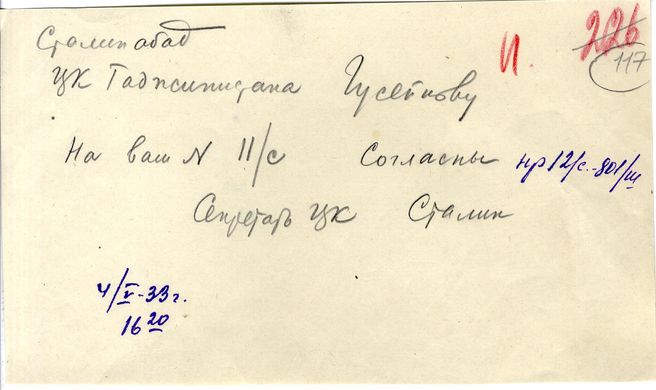 Сталинабад
И.
226
117
ЦК Таджикистана Гусейнову
На ваш N 11/с Согласны
нр12/с.-801/ш
Секретарь ЦК Сталин
4/V-33 г.
16 20